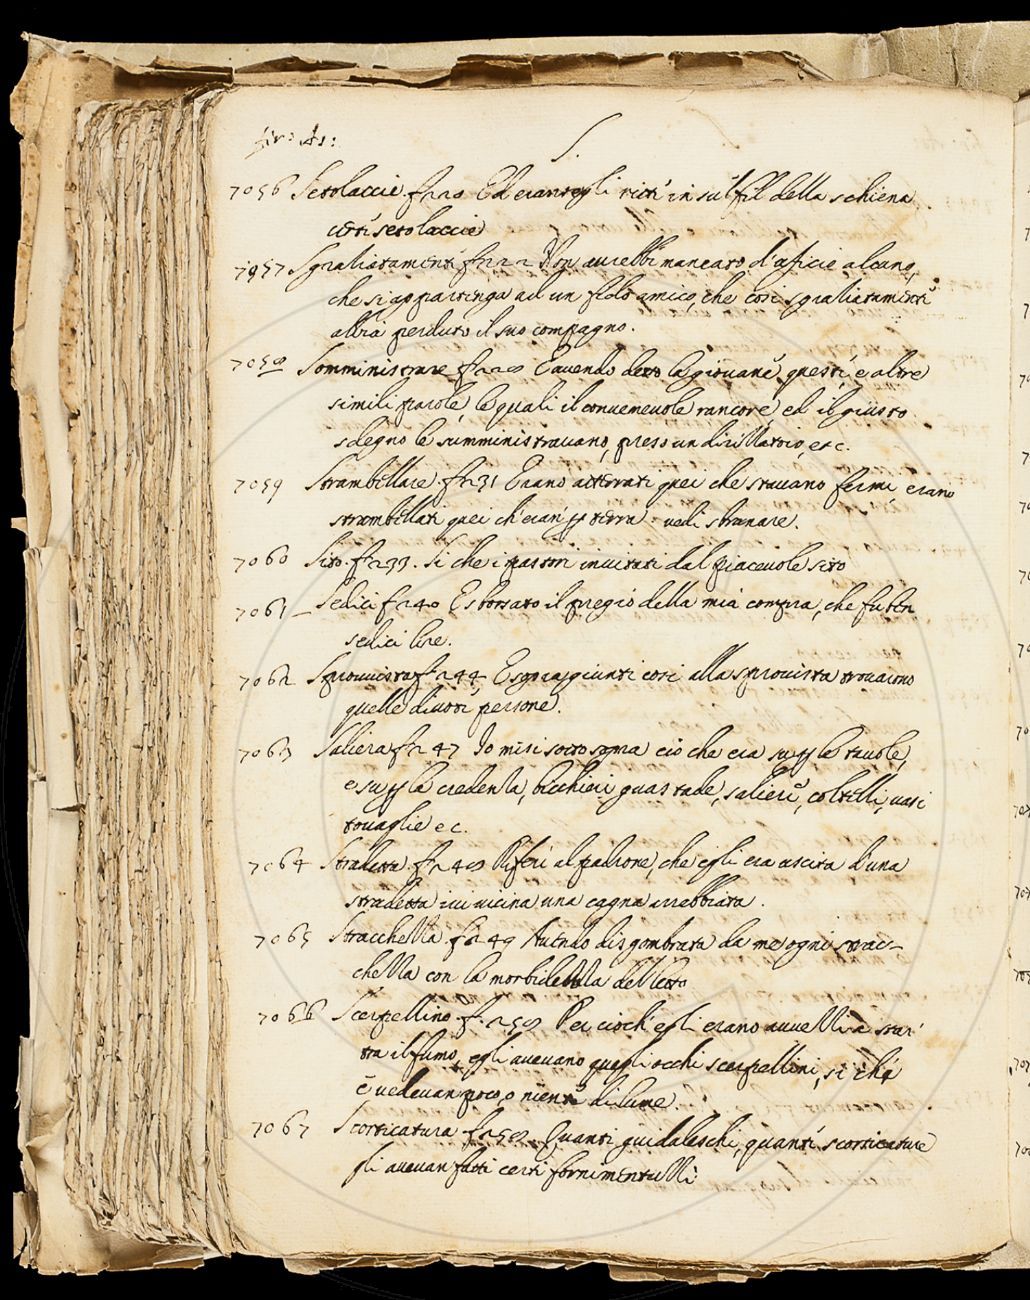 fir: As:
S.
7056 Setolaccie. fr 20 Ed erangli ritti in sul fil della schiena
certi setolaccie
7057 Sgraliatamenti fr 22 Non aurebbi mancato d'uficio alcuno,
che si appartenga ad un fido amico, che così sgraliatamenti
abbia perduto il suo compagno.
7058 Somministrare fr 28 E auendo detto la giouane questi, e altre
simili parole, le quali il conueneuole rancore, ed il giusto
sdegno le sumministrauano, preso un dirillatoio, etc.
7059 Strambellare. fr 31 Erano atterrati quei che stauano fermi, erano
strambellati quei ch'eran p terra. uedi sbranare.
7060 Sito. fr 33. Si che i pastori inuitati dal piaceuole sito
7061 Sedici fr 40 E sborsato il pregio della mia compra, che fu ben
sedici lire.
7062 Sprouuista fr 44 E sopraggiunti così alla sprouista trouarono
quelle diuoti persone.
7063 Saliera fr 47 Io misi sotto sopra ciò che era su p le tauole,
e su p la credenza, bicchieri guastade, salieri, coltelli, uasi
touaglie ec.
7064 Stradetta. fr 48 Riferi al padrone, che egli era uscita d'una
stradetta iui uicina una cagna arrabbiata.
7065 Stracchezza fr 49 Auendo disgombrata da me ogni strac-
chezza con la morbidezza del letto
7066 Scerpellino fr. 58 Per cioch'egli erano auuezzi a star
tra il fumo, egli aueuano quegli occhi scerpellini, si che
e uedeuan poco, o niente di lume.
7067 Scorticatura fr 58 Quanti guidaleschi, quanti scorticature
gli aueuan fatti certi fornimentuzzi